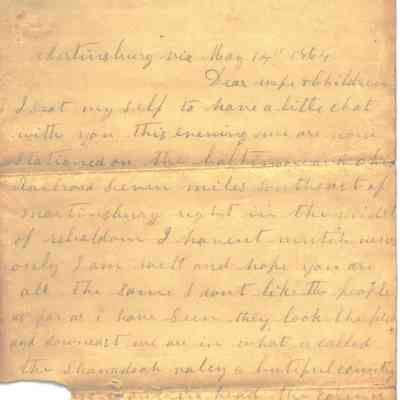 Martinsburg via May 14th 1864
Dear wife & Children
I seat my self to have a little chat
with you this evening we are now
stationed on the baltimore and ohio
Railroad seven miles southeast of
martinsburg right in the midst
of rebeldom I havent mutch news
only I am well and hope you are
all the same I dont like the people
as far as i have Seen they look
and downcast we are in what is called
the Shanadoah valey a butiful country